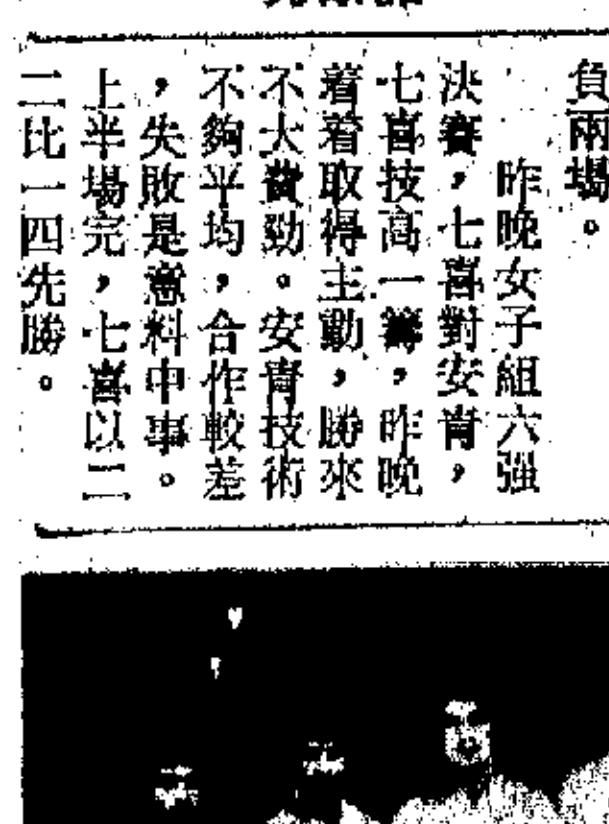 負兩場。
昨晚女子組六强
決賽，七喜對安青，
七喜技高一籌，昨晚
着着取得主動，勝來
不大費勁。安青技術
不夠平均，合作較差
，失敗是意料中事。
上半場完，七喜以二
二比一四先勝。